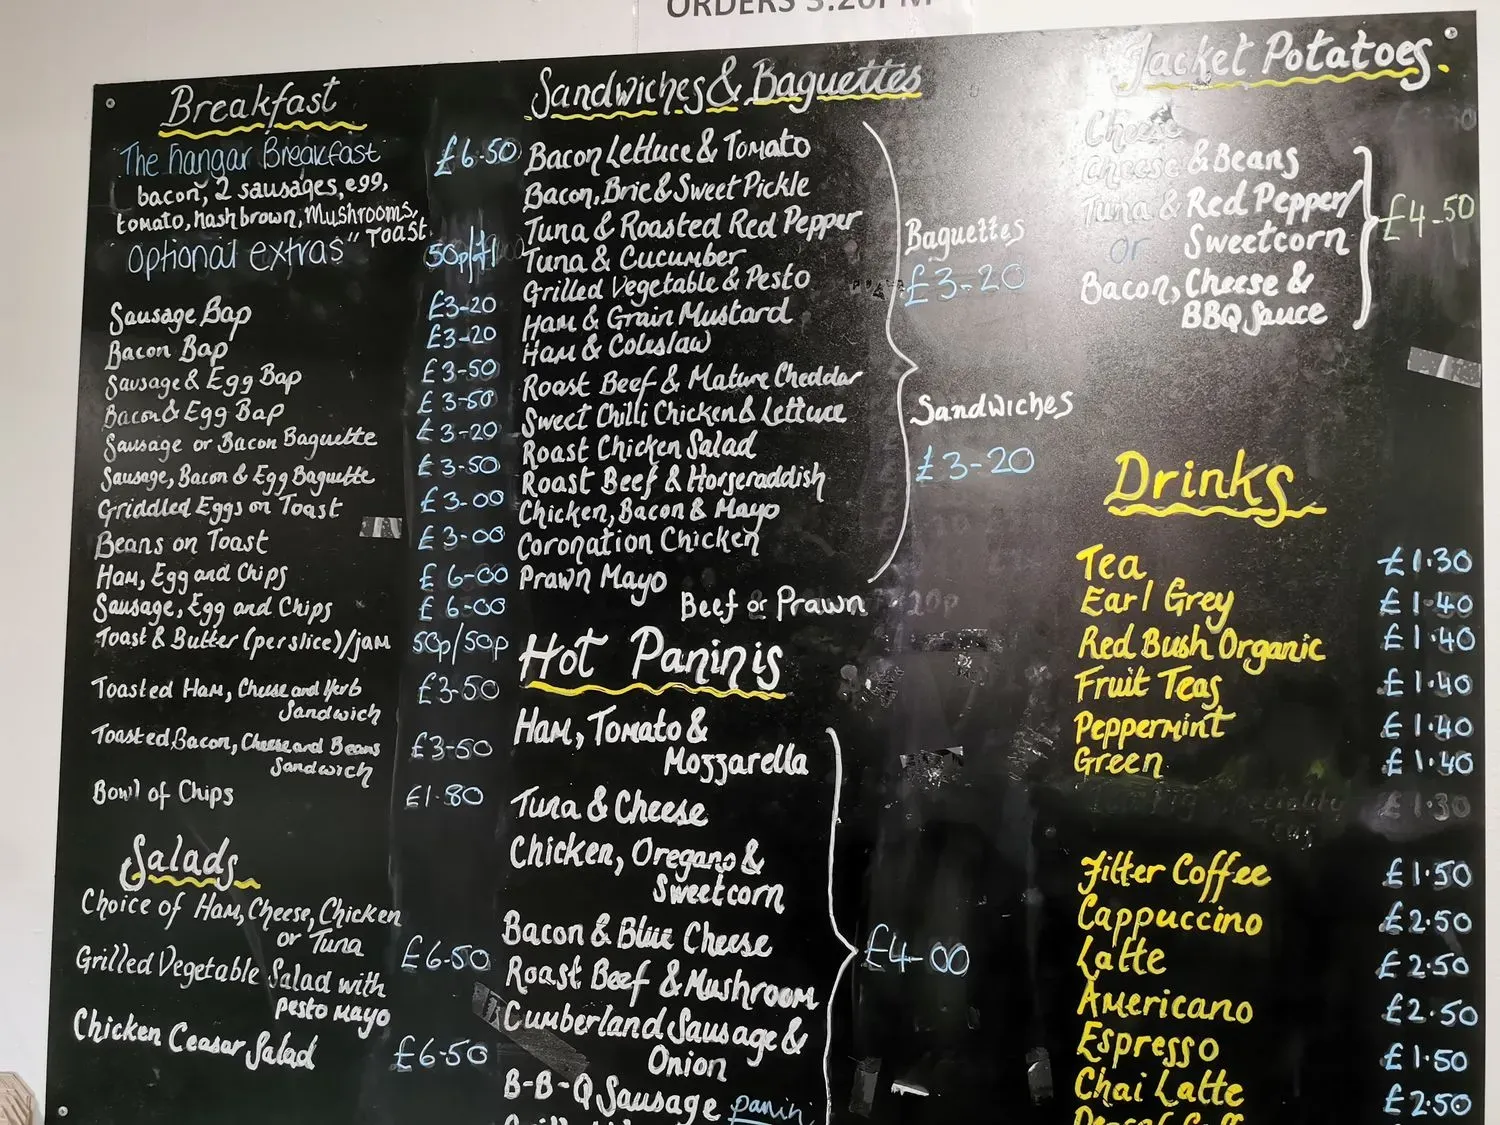 ORDERS 3.20PM
Breakfast
The Hangar Breakfast £6.50
bacon, 2 sausages, egg,
tomato, hash brown, Mushrooms,
Toast
Optional extras" 50p/£1
Sausage Bap £3-20
Bacon Bap £3-20
Sausage & Egg Bap £3-50
Bacon & Egg Bap £3-50
Sausage or Bacon Baguette £3-20
Sausage, Bacon & Egg Baguette £3-50
Griddled Eggs on Toast £3-00
Beans on Toast £3-00
Ham, Egg and Chips £6-00
Sausage, Egg and Chips £6-00
Toast & Butter (per slice)/jam 50p/50p
Toasted Ham, Cheese and Herb £3-50
Sandwich
Toasted, Bacon, Cheese and Beans £3-50
Sandwich
Bowl of Chips £1.80
Salads
Choice of Ham, Cheese, Chicken
or Tuna £6-50
Grilled Vegetable Salad with
Pesto Mayo
Chicken Ceasar Salad £6-50
Sandwiches & Baguettes
Bacon Lettuce & Tomato
Bacon, Brie & Sweet Pickle
Tuna & Roasted Red Pepper
Tuna & Cucumber
Grilled Vegetable & Pesto
Ham & Grain Mustard
Ham & Coleslaw
Roast Beef & Mature Cheddar
Sweet Chilli Chicken & Lettuce
Roast Chicken Salad
Roast Beef & Horseraddish
Chicken, Bacon & Mayo
Coronation Chicken
Prawn Mayo
Beef or Prawn 20p
Baguettes
£3-20
Sandwiches
£3-20
Hot Paninis
Ham, Tomato &
Mozzarella
Tuna & Cheese
Chicken, Oregano &
Sweetcorn
Bacon & Blue Cheese
Roast Beef & Mushroom
Cumberland Sausage &
Onion
B-B-Q Sausage panini
£4-00
Jacket Potatoes
Cheese
Cheese & Beans
Tuna & Red Pepper/
or Sweetcorn
Bacon, Cheese &
BBQ Sauce
£4-50
Drinks
Tea £1.30
Earl Grey £1.40
Red Bush Organic £1.40
Fruit Teas £1.40
Peppermint £1.40
Green £1.40
£1.30
Filter Coffee £1.50
Cappuccino £2.50
Latte £2.50
Americano £2.50
Espresso £1.50
Chai Latte £2.50